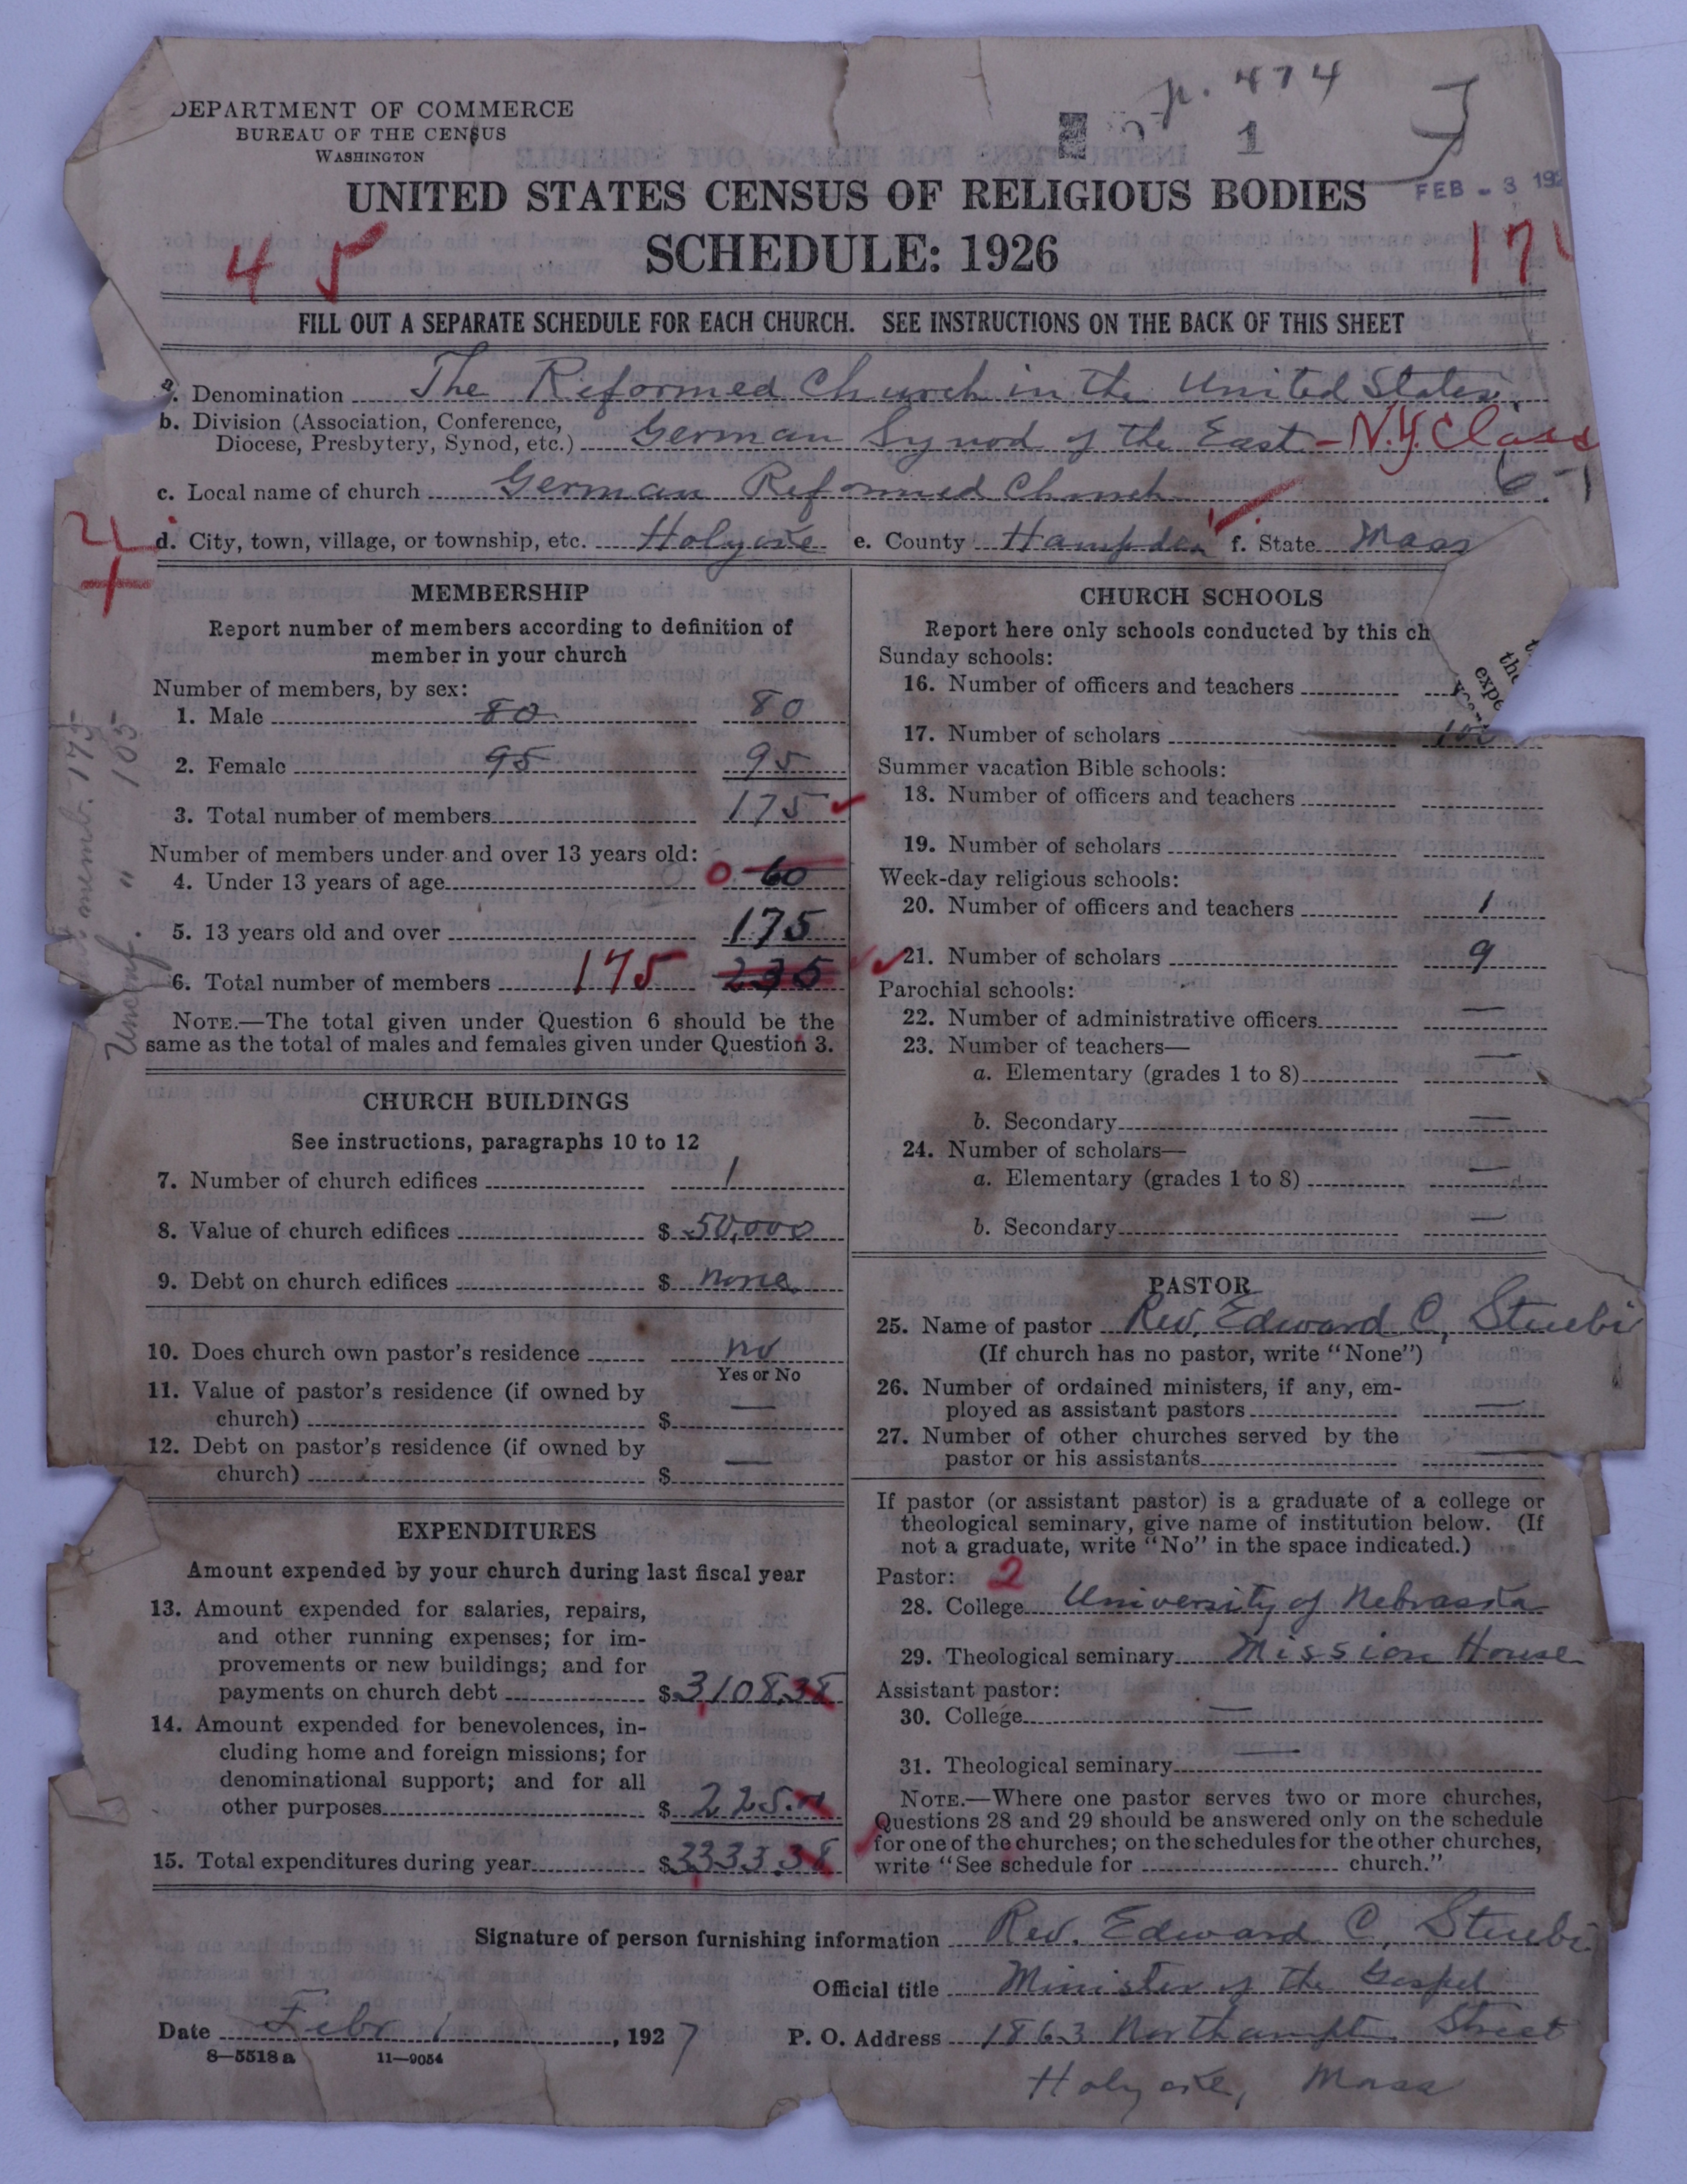 p. 474
DEPARTMENT OF COMMERCE
BUREAU OF THE CENSUS
WASHINGTON
1
FEB - 3 192
UNITED STATES CENSUS OF RELIGIOUS BODIES
SCHEDULE: 1926
45
17
FILL OUT A SEPARATE SCHEDULE FOR EACH CHURCH. SEE INSTRUCTIONS ON THE BACK OF THIS SHEET
a. Denomination The Reformed Church in the United States.
b. Division (Association, Conference, Diocese, Presbytery, Synod, etc.) German Synod of the East - N.Y. Class
c. Local name of church German Reformed Church
d. City, town, village, or township, etc. Holyoke e. County Hampden f. State Mass
memb. 175
Unconf. " 105
MEMBERSHIP
Report number of members according to definition of
member in your church
Number of members, by sex:
1. Male 80 80
2. Female 95 95
3. Total number of members 175
Number of members under and over 13 years old:
4. Under 13 years of age 0 60
5. 13 years old and over 175
6. Total number of members 175 235
NOTE.—The total given under Question 6 should be the
same as the total of males and females given under Question 3.
CHURCH BUILDINGS
See instructions, paragraphs 10 to 12
7. Number of church edifices 1
8. Value of church edifices $ 50,000
9. Debt on church edifices $ none
10. Does church own pastor's residence no
Yes or No
11. Value of pastor's residence (if owned by
church) $ —
12. Debt on pastor's residence (if owned by
church) $ —
EXPENDITURES
Amount expended by your church during last fiscal year
13. Amount expended for salaries, repairs,
and other running expenses; for im-
provements or new buildings; and for
payments on church debt $ 3,108.38
14. Amount expended for benevolences, in-
cluding home and foreign missions; for
denominational support; and for all
other purposes $ 225.
15. Total expenditures during year $ 3333.38
CHURCH SCHOOLS
Report here only schools conducted by this ch
Sunday schools:
16. Number of officers and teachers
17. Number of scholars
Summer vacation Bible schools:
18. Number of officers and teachers
19. Number of scholars
Week-day religious schools:
20. Number of officers and teachers 1
21. Number of scholars 9
Parochial schools:
22. Number of administrative officers —
23. Number of teachers—
a. Elementary (grades 1 to 8) —
b. Secondary —
24. Number of scholars—
a. Elementary (grades 1 to 8) —
b. Secondary —
PASTOR
25. Name of pastor Rev. Edward C. Stuebi
(If church has no pastor, write "None")
26. Number of ordained ministers, if any, em-
ployed as assistant pastors —
27. Number of other churches served by the
pastor or his assistants —
If pastor (or assistant pastor) is a graduate of a college or
theological seminary, give name of institution below. (If
not a graduate, write "No" in the space indicated.)
Pastor: 2
28. College University of Nebraska
29. Theological seminary Mission House
Assistant pastor:
30. College —
31. Theological seminary —
NOTE.—Where one pastor serves two or more churches,
Questions 28 and 29 should be answered only on the schedule
for one of the churches; on the schedules for the other churches,
write "See schedule for church."
Signature of person furnishing information Rev. Edward C. Stuebi
Official title Minister of the Gospel
Date Febr 1, 1927 P. O. Address 1863 Northampt. Street
8—5518 a 11—9054
Holyoke, Mass